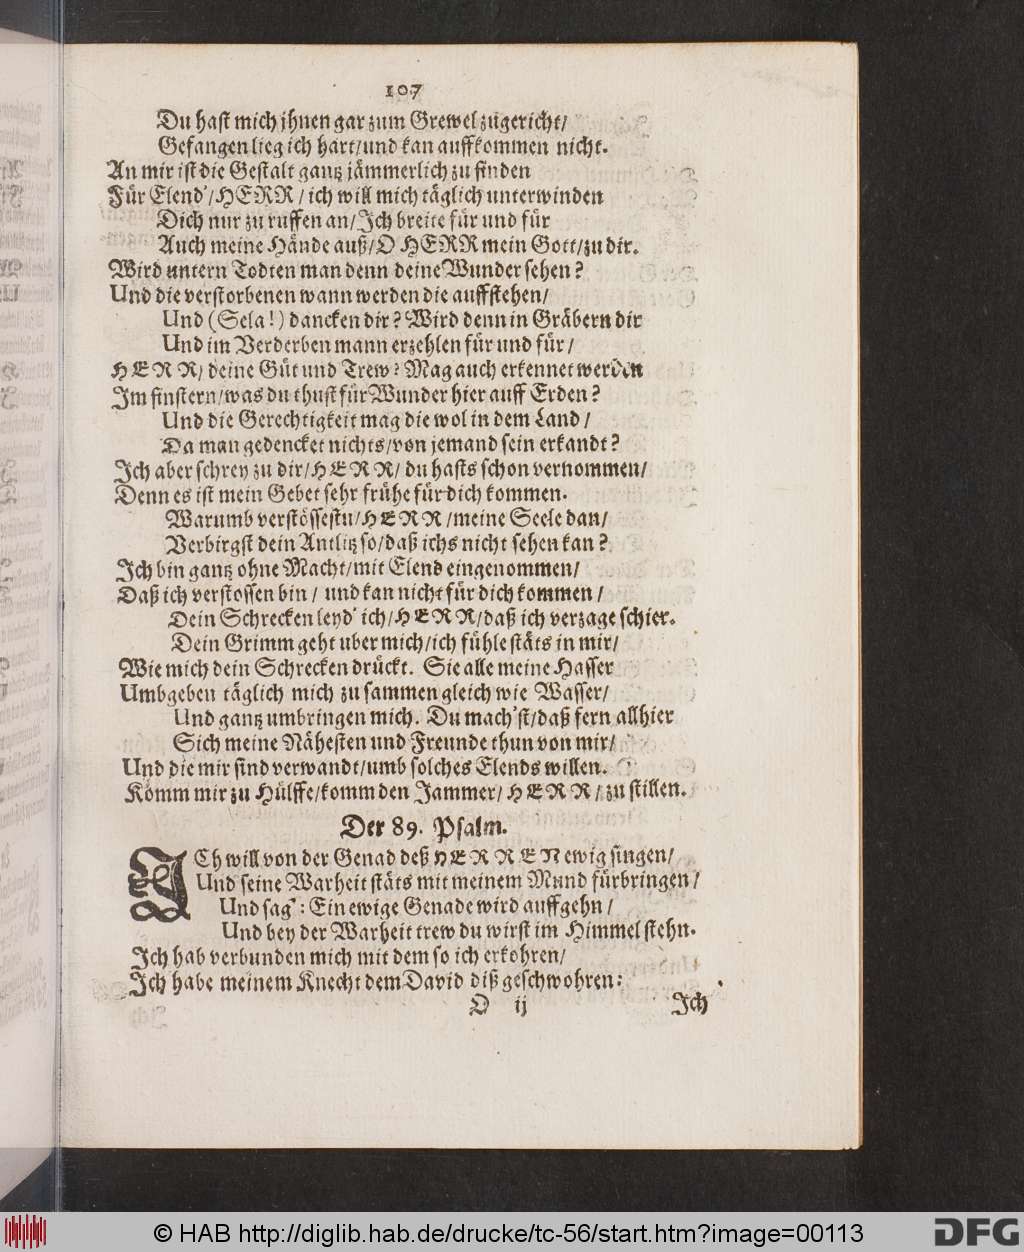 107
Du hast mich jhnen gar zum Grewel zugericht/
Gefangen lieg ich hart/und kan auffkommen nicht.
An mir ist die Gestalt gantz jämmerlich zu finden
Für Elend'/HERR/ich will mich täglich unterwinden
Dich nur zu ruffen an/Ich breite für und für
Auch meine Hände auß/O HERR mein Gott/zu dir.
Wird untern Todten man denn deine Wunder sehen?
Und die verstorbenen wann werden die auffstehen/
Und (Sela!) dancken dir? Wird denn in Gräbern dir
Und im Verderben mann erzehlen für und für/
HERR/deine Güt und Trew? Mag auch erkennet werden
Im finstern/was du thust für Wunder hier auff Erden?
Und die Gerechtigkeit mag die wol in dem Land/
Da man gedencket nichts/von jemand sein erkandt?
Ich aber schrey zu dir/HERR/du hasts schon vernommen/
Denn es ist mein Gebet sehr frühe für dich kommen.
Warumb verstössestu/HERR/meine Seele dan/
Verbirgst dein Antlitz so/daß ichs nicht sehen kan?
Ich bin gantz ohne Macht/mit Elend eingenommen/
Daß ich verstossen bin/und kan nicht für dich kommen/
Dein Schrecken leyd' ich/HERR/daß ich verzage schier.
Dein Grimm geht uber mich/ich fühle stäts in mir/
Wie mich dein Schrecken drückt. Sie alle meine Hasser
Umbgeben täglich mich zu sammen gleich wie Wasser/
Und gantz umbringen mich. Du mach'st/daß fern allhier
Sich meine Nähesten und Freunde thun von mir/
Und die mir sind verwandt/umb solches Elends willen.
Komm mir zu Hülffe/komm den Jammer/HERR/zu stillen.
Der 89. Psalm.
ICh will von der Genad deß HERREN ewig singen/
Und seine Warheit stäts mit meinem Mund fürbringen/
Und sag': Ein ewige Genade wird auffgehn/
Und bey der Warheit trew du wirst im Himmel stehn.
Ich hab verbunden mich mit dem so ich erkohren/
Ich habe meinem Knecht dem David diß geschwohren:
O ij Ich
© HAB http://diglib.hab.de/drucke/tc-56/start.htm?image=00113
DFG